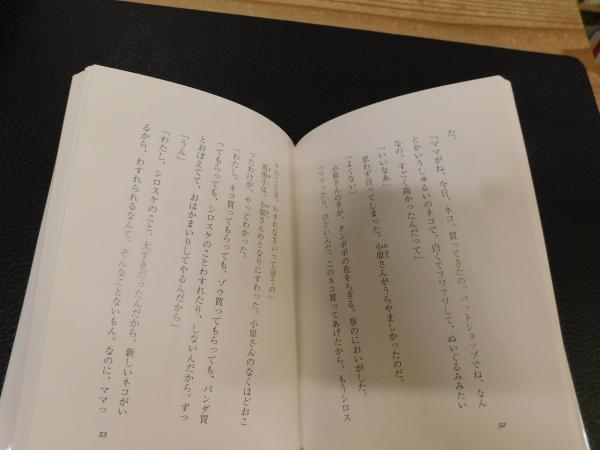 た。
「ママがね、今日、ネコ、買ってきたの。ペットショップでね、なん
とかいうしゅるいのネコで、白くてフワフワして、ぬいぐるみみたい
なの。すごく高かったんだって」
「いいなあ」
思わず言ってしまった。小原さんがうらやましかったのだ。
「よくない」
小原さんの手が、タンポポの花をちぎる。草のにおいがした。
「ママったら、ひどいんだ。このネコ買ってあげたから、もうシロス
52
ケのことは、わすれなさいって言うの」
真由子は、小原さんのとなりにすわった。小原さんのなくほどおこ
ったわけが、やっとわかった。
「わたし、ネコ買ってもらっても、ゾウ買ってもらっても、パンダ買
ってもらっても、シロスケのことわすれたり、しないんだから。ずっ
とおぼえてて、おはかまいりしてやるんだから」
「うん」
「わたし、シロスケのこと、大すきだったんだから。新しいネコがい
るから、わすれられるなんて、そんなことないもん。なのに、ママっ
53